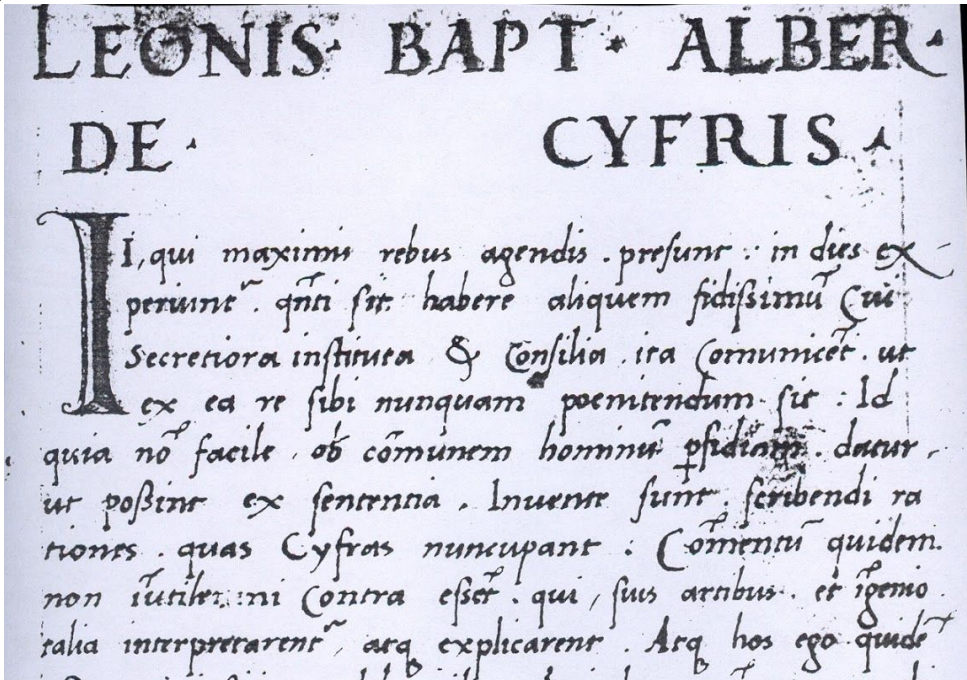 LEONIS· BAPT· ALBER·
DE· CYFRIS·
II, qui maximis rebus agendis . presunt : in dies ex-
periunt᷑ . qñti sit habere aliquem fidissimũ Cui
Secretiora instituta & Consilia . ita Comunicẽt . ut
ex ea re sibi nunquam poenitendum sit : Id
quia nõ facile . ob cõmunem hominũ ꝑfidiam . datur ,
ut poßint ex sententia . Invente sunt . scribendi ra
tiones . quas Cyfras nuncupant : Cõmentũ quidem
non ĩutile : ni Contra eßẽt . qui , suis artibus . et ĩgenio
talia interpretarent᷑ , atq explicarent . Atq hos ego quidẽ